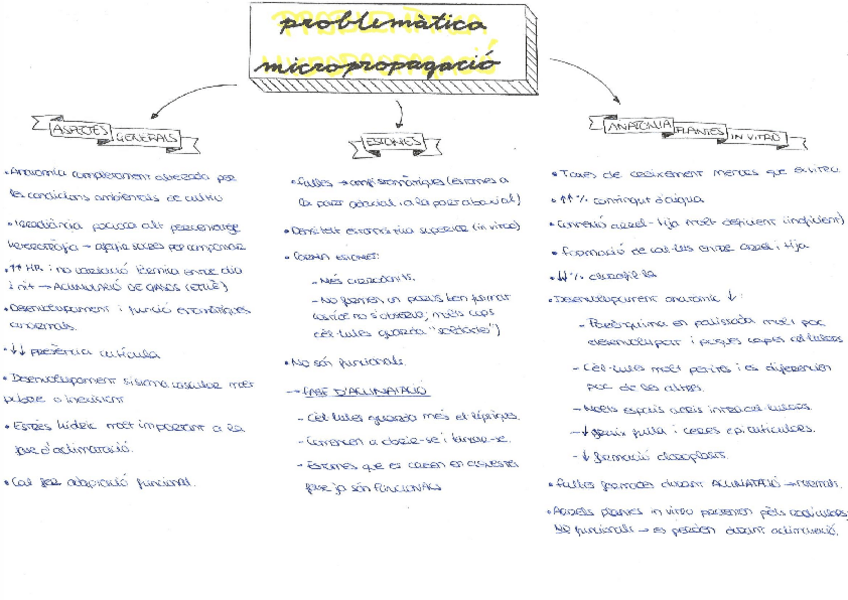 problemàtica
micropropagació
ASPECTES GENERALS
• Anatomia completament alterada per
les condicions ambientals de cultiu
• Irradiància poc alt percentatge
heterotròfia → agafar sucres per compensar
• ↑↑ HR i no variació tèrmica entre dia
i nit → ACUMULACIÓ DE GASOS (ETILÈ)
• Desenvolupament i funció estomàtiques
anormals.
• ↓↓ presència cutícula
• Desenvolupament sistema vascular molt
pobre o inexistent
• Estrès hídric molt important a la
fase d'aclimatació.
• Cal fer adaptació funcional.
ESTOMES
• fulles → amfiestomàtiques (estomes a
la part adaxial i a la part abaxial)
• Densitat estomàtica superior (in vitro)
ESTOMES:
- Més arrodonits.
- No formen un porus ben format
no s'observa; molts cops
cèl·lules guarda "soldades")
• No són funcionals.
→ FASE D'ACLIMATACIÓ
- Cèl·lules guarda més el·líptiques.
- Comencen a obrir-se i tancar-se.
- Estomes que es creen en aquesta
fase ja són FUNCIONALS
ANATOMIA PLANTES IN VITRO
• Taxes de creixement menors que ex vitro
• ↑↑ % contingut d'aigua
• Connexió arrel-tija molt deficient (ineficient)
• Formació de cal·lus entre arrel i tija
• ↓↓ % clorofil·la
• Desenvolupament anatòmic ↓:
- Parènquima en palissada molt poc
desenvolupat i poques capes cel·lulars
- Cèl·lules molt petites i es diferencien
poc de les altres.
- Molts espais aeris intercel·lulars.
- ↓ gruix fulla i ceres epicuticulars.
- ↓ formació cloroplasts.
• Fulles formades durant ACLIMATACIÓ → normals.
• Arrels plantes in vitro presenten pèls radiculars,
NO funcionals → es perden durant aclimatació.